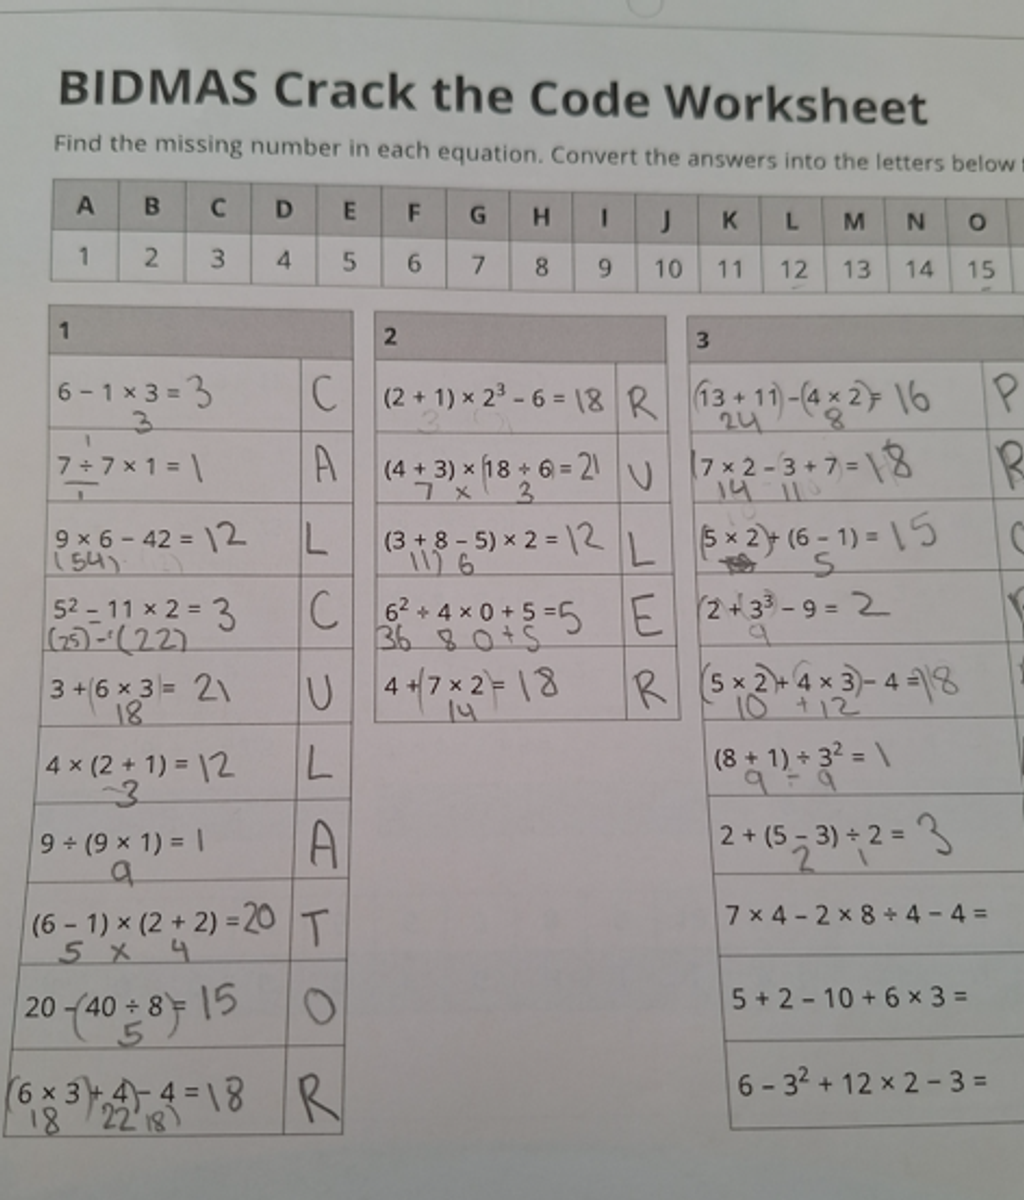 BIDMAS Crack the Code Worksheet
Find the missing number in each equation. Convert the answers into the letters below
A B C D E F G H I J K L M N O
1 2 3 4 5 6 7 8 9 10 11 12 13 14 15
1
6 − 1 × 3 = 3 C
3
1
7 ÷ 7 × 1 = 1 A
1
9 × 6 − 42 = 12 L
(54)
5² − 11 × 2 = 3 C
(25) - (22)
3 + (6 × 3) = 21 U
18
4 × (2 + 1) = 12 L
3
9 ÷ (9 × 1) = 1 A
9
(6 − 1) × (2 + 2) = 20 T
5 × 4
20 − (40 ÷ 8) = 15 O
5
(6 × 3) + 4) − 4 = 18 R
18 22 18)
2
(2 + 1) × 2³ − 6 = 18 R
3
(4 + 3) × (18 ÷ 6) = 21 U
7 × 3
(3 + 8 − 5) × 2 = 12 L
11) 6
6² ÷ 4 × 0 + 5 = 5 E
36 8 0 + 5
4 + (7 × 2) = 18 R
14
3
(13 + 11) − (4 × 2) = 16 P
24 8
(7 × 2 − 3 + 7 = 18 R
14 11
(5 × 2) + (6 − 1) = 15
5
(2 + (3³ − 9 = 2
9
(5 × 2) + (4 × 3) − 4 = 18
10 + 12
(8 + 1) ÷ 3² = 1
9 ÷ 9
2 + (5 − 3) ÷ 2 = 3
2 1
7 × 4 − 2 × 8 ÷ 4 − 4 =
5 + 2 − 10 + 6 × 3 =
6 − 3² + 12 × 2 − 3 =